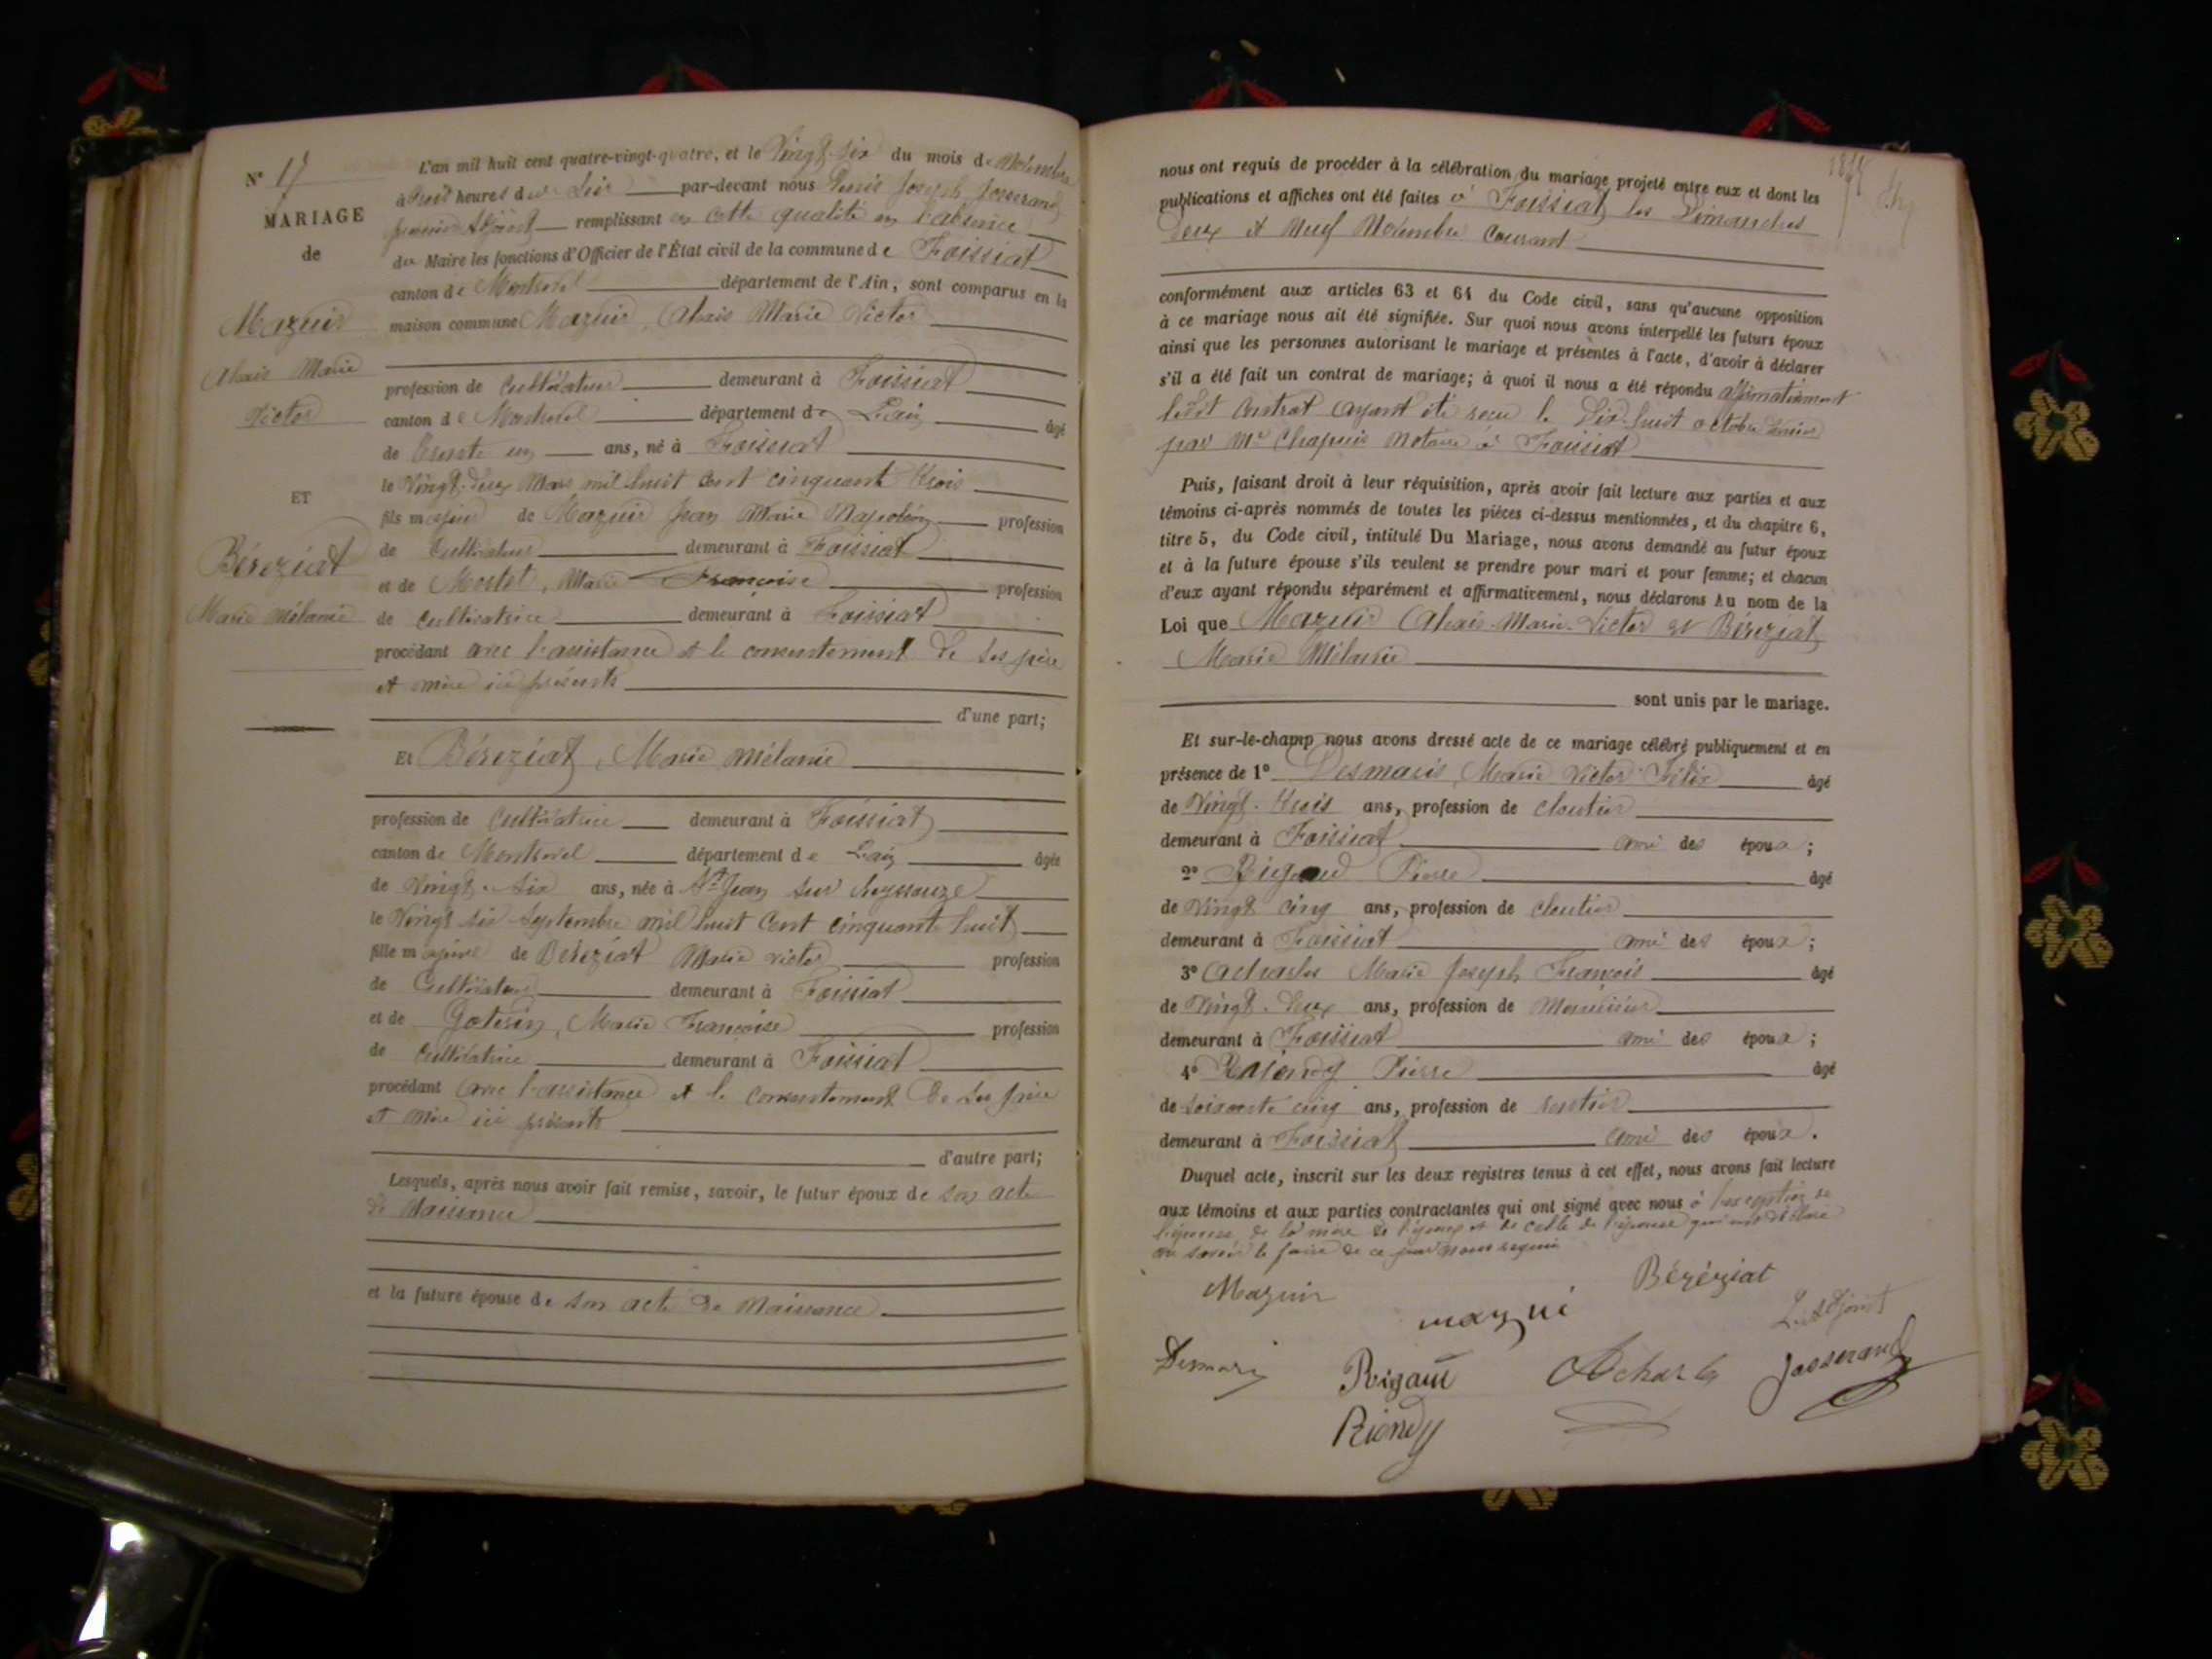 N° 17
MARIAGE
de
Mazuir
Alexis Marie
Victor
ET
Béréziat
Marie Mélanie
L'an mil huit cent quatre-vingt-quatre, et le Vingt-six du mois de Novembre
à trois heures du Soir par-devant nous Denis Joseph Josserand
premier Adjoint remplissant en cette qualité en l'absence
du Maire les fonctions d'Officier de l'État civil de la commune de Foissiat
canton de Montrevel département de l'Ain, sont comparus en la
maison commune Mazuir, Alexis Marie Victor
profession de Cultivateur demeurant à Foissiat
canton de Montrevel département de L'ain âgé
de trente un ans, né à Foissiat
le Vingt-deux Mars mil huit cent cinquante trois
fils majeur de Mazuir Jean Marie Napoléon profession
de Cultivateur demeurant à Foissiat
et de Mortel, Marie Françoise profession
de Cultivatrice demeurant à Foissiat
procédant avec l'assistance et le consentement de ses père
et mère ici présents
d'une part;
Et Béréziat, Marie Mélanie
profession de Cultivatrice demeurant à Foissiat
canton de Montrevel département de L'ain âgée
de Vingt-six ans, née à St Jean sur Reyssouze
le Vingt six Septembre mil huit cent cinquante huit
fille majeure de Béréziat Marie Victor profession
de Cultivateur demeurant à Foissiat
et de Marie Françoise profession
de Cultivatrice demeurant à Foissiat
procédant avec l'assistance et le consentement de ses père
et mère ici présents
d'autre part;
Lesquels, après nous avoir fait remise, savoir, le futur époux de son acte
de Naissance
et la future épouse de son acte de Naissance
nous ont requis de procéder à la célébration du mariage projeté entre eux et dont les
publications et affiches ont été faites à Foissiat les Dimanches
deux et Neuf Novembre Courant
conformément aux articles 63 et 64 du Code civil, sans qu'aucune opposition
à ce mariage nous ait été signifiée. Sur quoi nous avons interpellé les futurs époux
ainsi que les personnes autorisant le mariage et présentes à l'acte, d'avoir à déclarer
s'il a été fait un contrat de mariage; à quoi il nous a été répondu affirmativement
ledit Contrat ayant été reçu le Dix-huit octobre dernier
par Me Chapuis Notaire à Foissiat
Puis, faisant droit à leur réquisition, après avoir fait lecture aux parties et aux
témoins ci-après nommés de toutes les pièces ci-dessus mentionnées, et du chapitre 6,
titre 5, du Code civil, intitulé Du Mariage, nous avons demandé au futur époux
et à la future épouse s'ils veulent se prendre pour mari et pour femme; et chacun
d'eux ayant répondu séparément et affirmativement, nous déclarons Au nom de la
Loi que Mazuir Alexis-Marie-Victor et Béréziat
Marie Mélanie
sont unis par le mariage.
Et sur-le-champ nous avons dressé acte de ce mariage célébré publiquement et en
présence de 1° Desmaris Marie Victor Félix âgé
de Vingt-trois ans, profession de cloutier
demeurant à Foissiat ami des époux;
2° Rigaud Pierre âgé
de Vingt cinq ans, profession de cloutier
demeurant à Foissiat ami des époux;
3° Acharles Marie Joseph François âgé
de Vingt-deux ans, profession de Menuisier
demeurant à Foissiat ami des époux;
4° Riondy Pierre âgé
de soixante cinq ans, profession de rentier
demeurant à Foissiat ami des époux.
Duquel acte, inscrit sur les deux registres tenus à cet effet, nous avons fait lecture
aux témoins et aux parties contractantes qui ont signé avec nous à l'exception de
l'épouse, de la mère de l'époux et de celle de l'épouse qui ont déclaré
ne savoir le faire de ce par nous requis
Mazuir
mazui
Béréziat
L'adjoint
Desmaris
Rigaud
Acharles
Josserand
Riondy